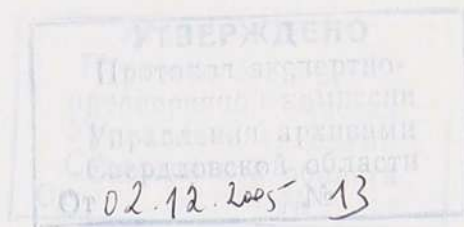 УТВЕРЖДЕНО
Протокол экспертно-
комиссии
Управления архивами
Свердловской области
От 02.12.2005 № 13